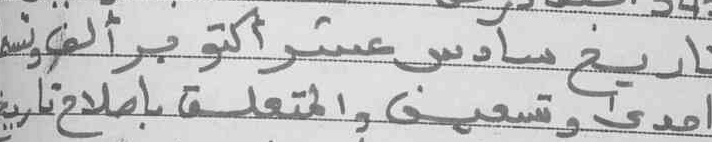 تاريخ سادس عشر أكتوبر ألف وتسع
احدى وتسعين والمتعلق باصلاح تاريخ